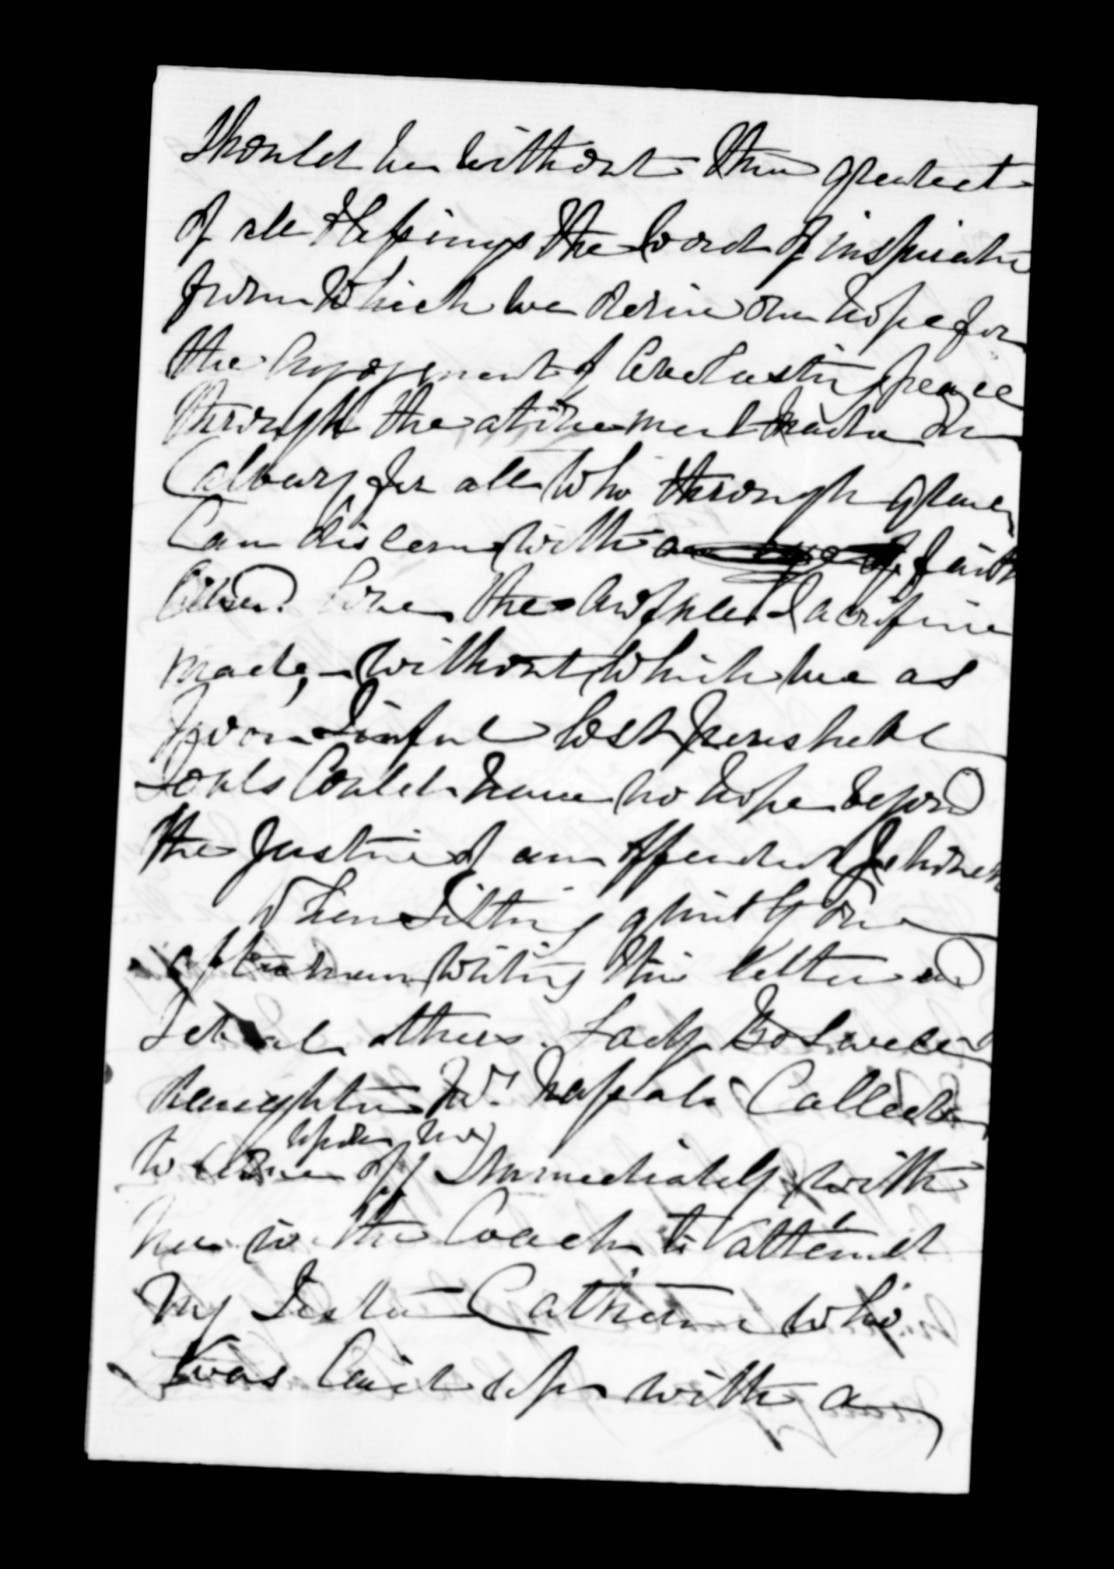 should be without this greatest
of all blessings the word of inspiratn
from which we derive our hope for
the enjoyment of everlasting peace
through the atonement made on
Calvary for all who through grace
Can discern with faith
and love the awful Sacrifice
made, - without which we as
poor sinful lost perishable
Souls Could have no hope beyond
the Justice of an offended Jehovah
When Sitting quietly one
afternoon writing this letter and
several others. Lady
daughter Mrs. Called
upon me
to come off Immediately with
her in the Coach to attend
my Sister Catherine who
was laid up with a